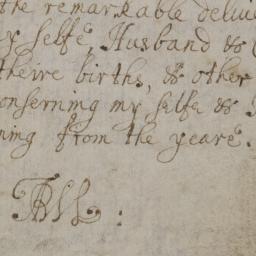 the remarkable deliv
my selfe, Husband &
theire births, & other
conserning my selfe &
ning from the yeare.